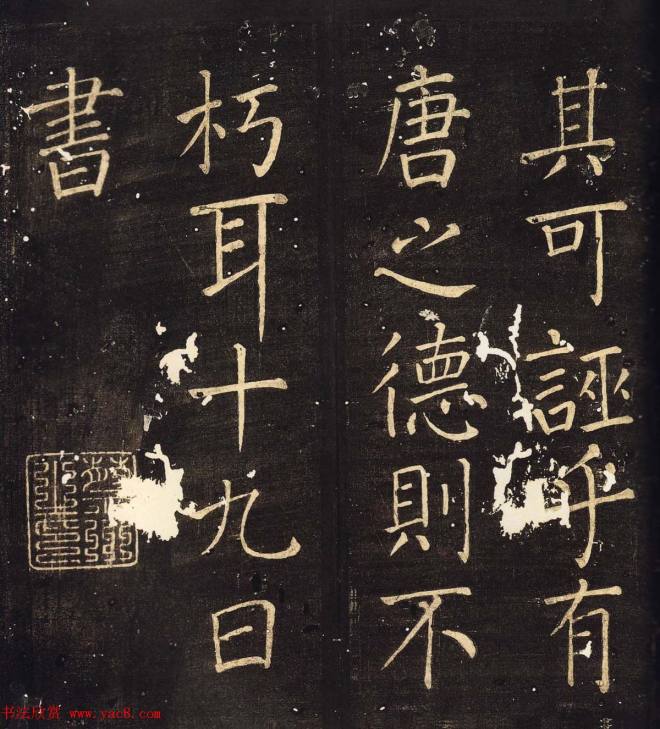 其可誣乎有
唐之德則不
朽耳十九日
書
书法欣赏 www.yac8.com